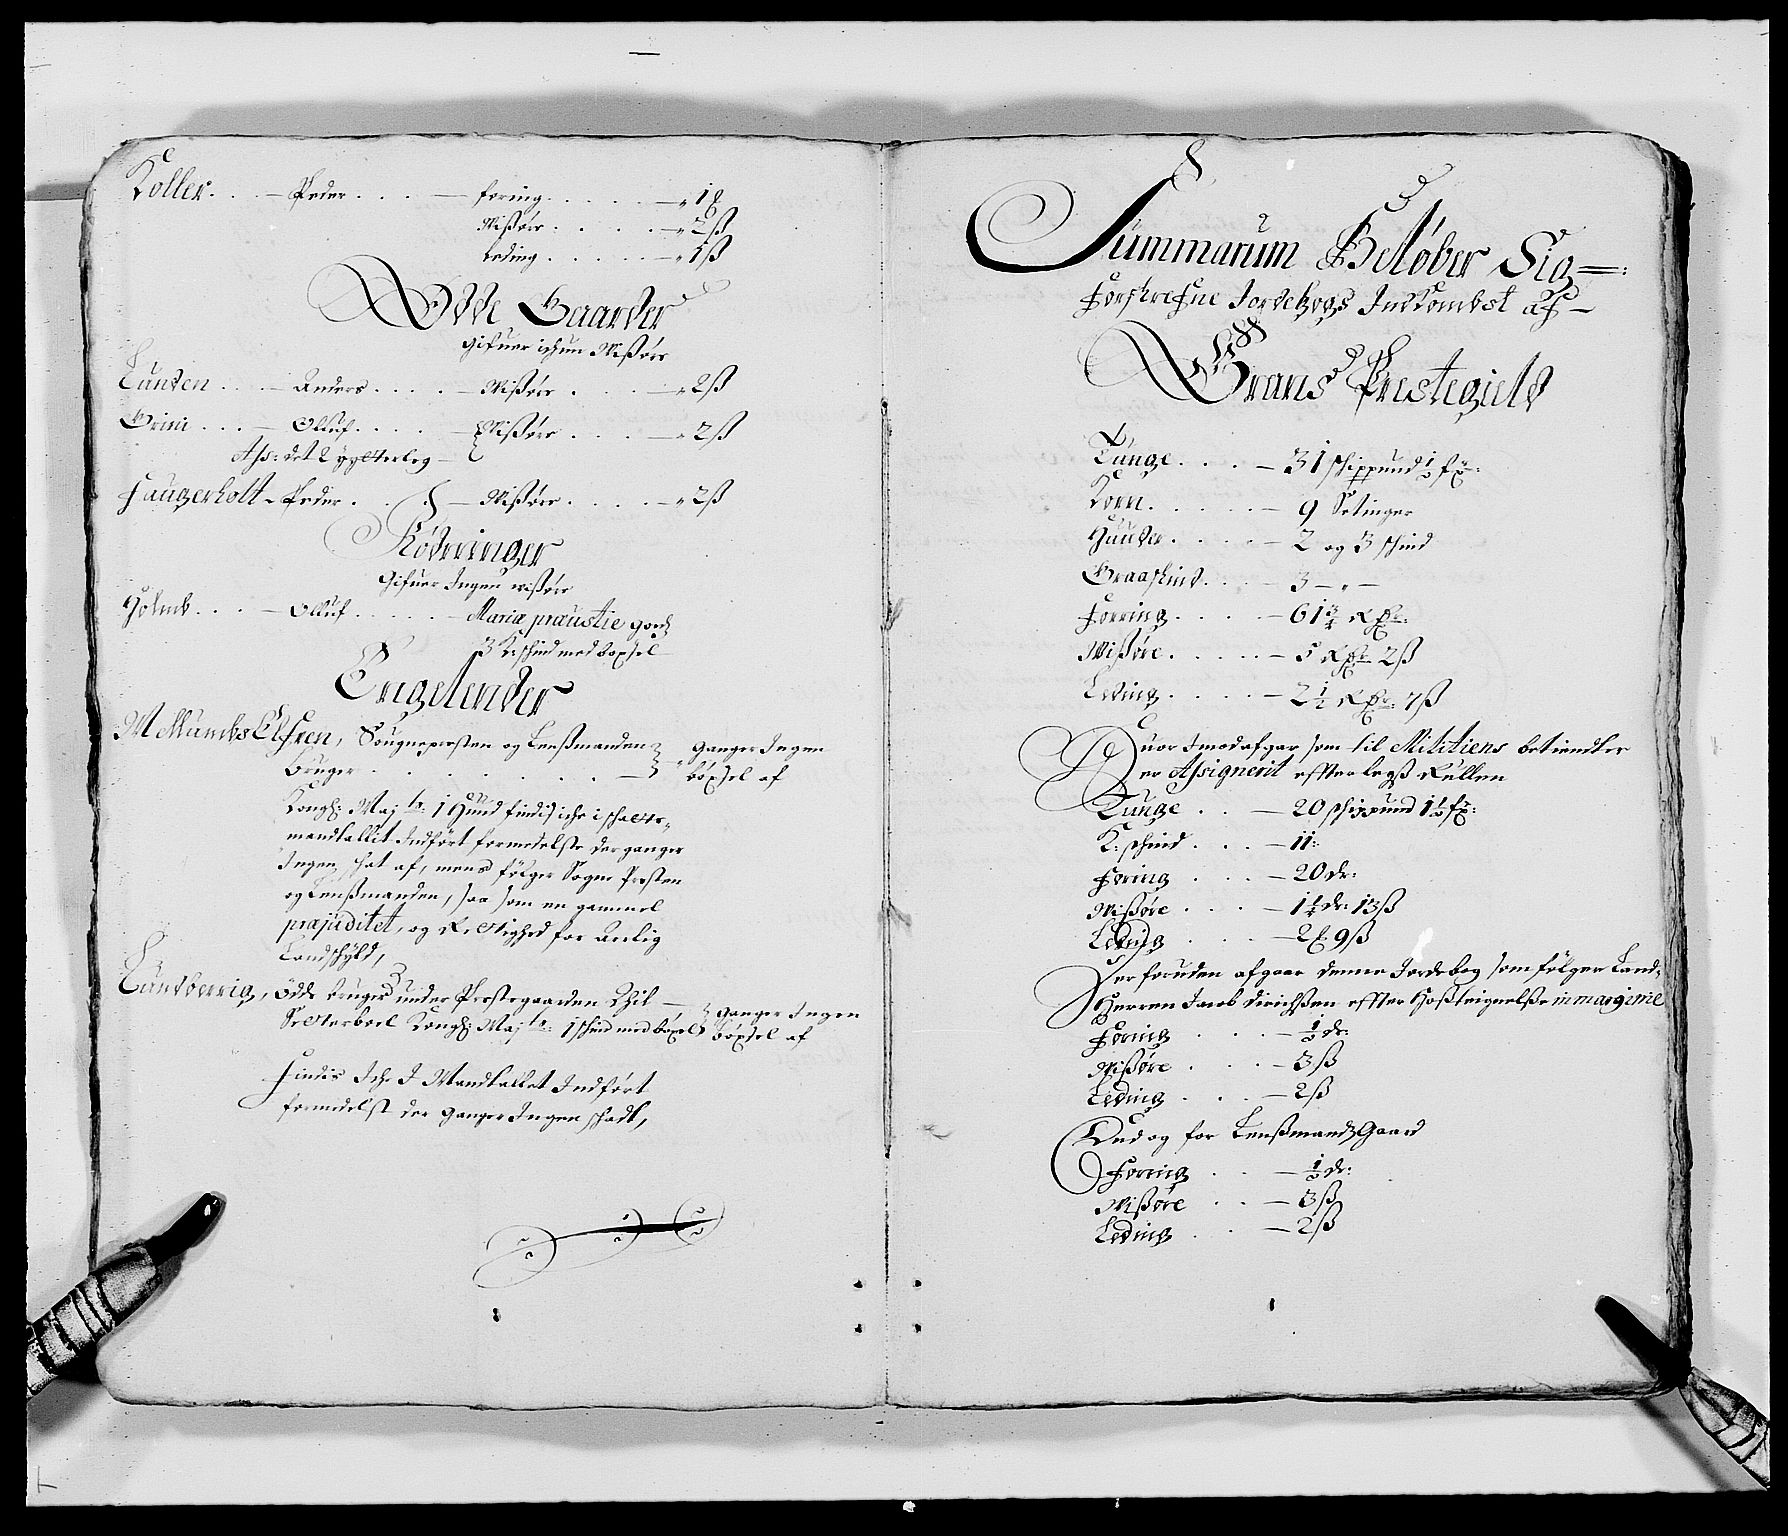 Koller. . . — Peder . . . . — foring . . . . . — „ 1 ₰
Wißøre . . . . . — „ 2ß
Leding . . . . . — „ 1ß
Øde Gaarder
Gifuer ichun Wißøre
Lunden . . . — Anders . . . . — Wißøre . . . . — „ 2ß
Grini . . . — Olluf . . . . — Wißøre . . . . — „ 2ß
Aß: det 2
Haugerholt — Peder . . . — Wißøre . . . . — „ 2ß
Rødninger
Gifuer Ingen wißøre
Holmb . . . . — Olluf . . . . . — Mariæ præustie goedz
3 K: schind med bøxsel
Engelender
Mellumbs Elfuen, Sougnepresten og Lenßmanden
bruger . . . . . . . . —
ganger Ingen
bøxsel af
Kongl: Maj tz: 1 Huud findis iche i schatte-
mandtallit Indført formedelst der ganger
Ingen schat af, mens følger Sogne Presten
og Lenßmanden, saa som en gammel
præjuditet, og Rettighed for Aarlig
Landschyld,
Lundberrig, Odde bruges under Prestegaarden Thil —
Setterboel Kongl: Maj tz: 1 schind med bøxel
ganger Ingen
bøxsel af
Findis Iche I Mandtallet Indført
formedelst der ganger Ingen schadt,
Summarum Beløber Sig
forskrefne Jordebogs Indkombst af —
Grans Prestegield
Tunge . . . — 31 schippund ½ fz:
Korn . . . . . — 9 Setinger
Huuder . . . . — 2 og 3 schind
Graaskind . . . — 3 — „ —
Forring . . . . — 61 ¾ Rdr:
Wißøre . . . . — 5 Rdr 2ß
Leding . . . . — 2 ½ Rdr: 7ß
Huor Imod afgar som til Militiens betiendter
er Assignerit effter legß Rullen
Tunge . . — 20 schippund 1 ½ fz:
K: schind . . . — 11:
Foring . . . — 20 dr:
Wißøre . . . — 1 ¼ dr: 13ß
Leding . . . — 2 9ß
Der foruden afgaar denne Jordebog som følger Land-
Herren Jacob dirichßen effter Hoßteignelße in margine
Foring . . . — ½ dr:
Wißøre . . . — 3ß
Leding . . . — 2ß
End og for Lenßmandz Gaard
Foring . . — ½ dr:
Wißøre . . — 3ß
Leding . . . — 2ß